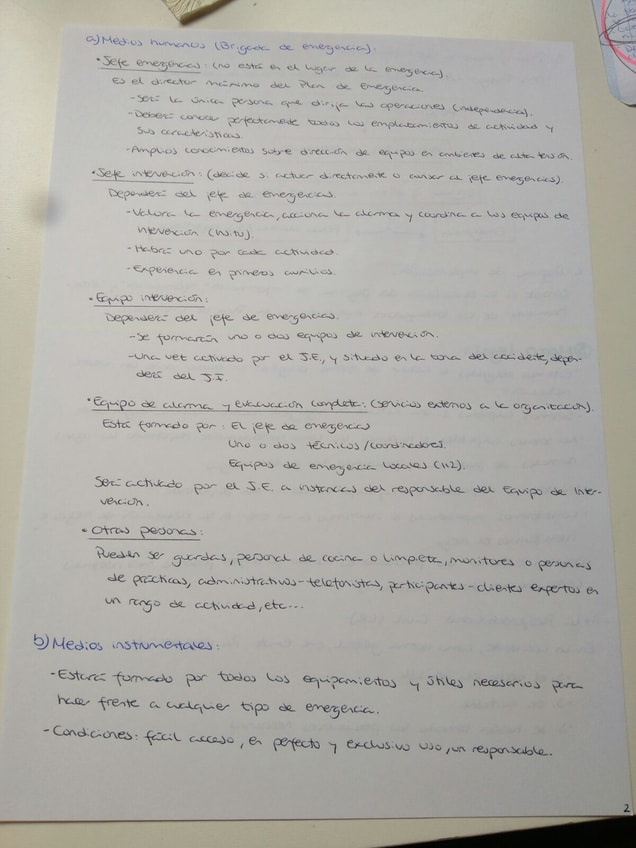 a) Medios humanos (Brigada de emergencia):
• Jefe emergencias: (no está en el lugar de la emergencia).
Es el director máximo del Plan de Emergencia.
- Será la única persona que dirija las operaciones (independencia).
- Deberá conocer perfectamente todos los emplazamientos de actividad y
sus características.
- Amplios conocimientos sobre dirección de equipos en ambientes de alta tensión.
• Jefe intervención: (decide si actuar directamente o avisar al jefe emergencias).
Dependerá del jefe de emergencias.
- Valora la emergencia, acciona la alarma y coordina a los equipos de
intervención (in situ).
- Habrá uno por cada actividad.
- Experiencia en primeros auxilios.
• Equipo intervención:
Dependerá del jefe de emergencias.
- Se formarán uno o dos equipos de intervención.
- Una vez activado por el J.E., y situado en la zona del accidente, depen-
derá del J.I.
• Equipo de alarma y evacuación completa: (servicios externos a la organización).
Está formado por: El jefe de emergencias
Uno o dos técnicos/coordinadores.
Equipos de emergencia locales (112).
Será activado por el J.E. a instancias del responsable del Equipo de Inter-
vención.
• Otras personas:
Pueden ser guardas, personal de cocina o limpieza, monitores o personas
de prácticas, administrativos-telefonistas, participantes-clientes expertos en
un rango de actividad, etc...
b) Medios instrumentales:
- Estará formado por todos los equipamientos y útiles necesarios para
hacer frente a cualquier tipo de emergencia.
- Condiciones: fácil acceso, en perfecto y exclusivo uso, un responsable.
2